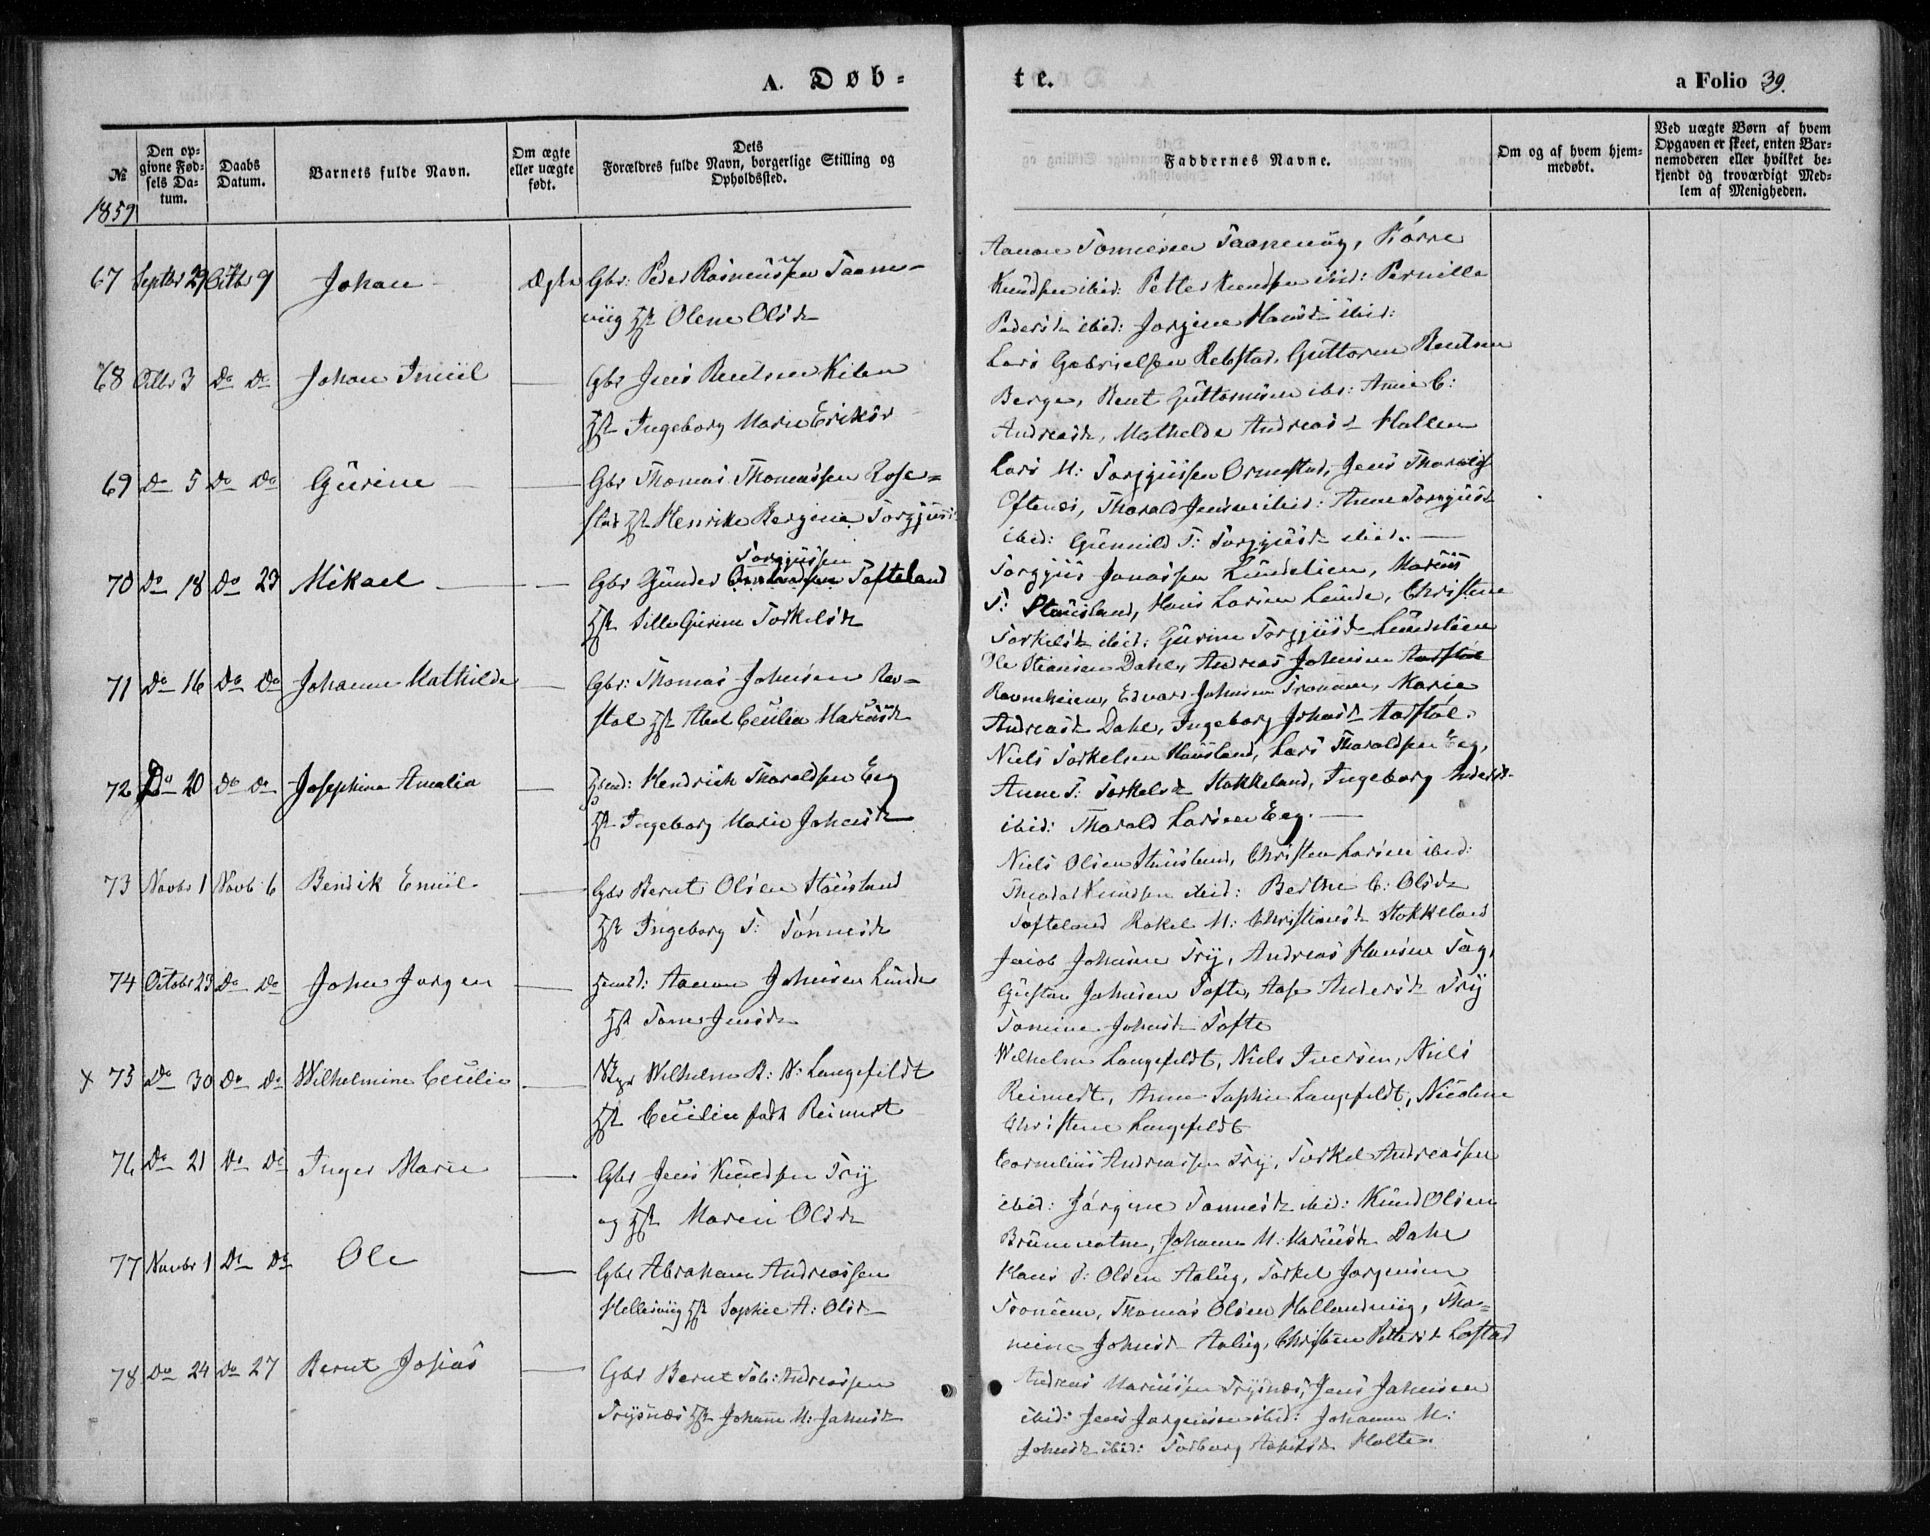 A. Døb-
te.
a Folio 39.
№
Den op-
givne Fød-
sels Da-
tum.
Daabs
Datum.
Barnets fulde Navn.
Om ægte
eller uægte
født.
Dets
Forældres fulde Navn, borgerlige Stilling og
Opholdssted.
Faddernes Navne.
Om og af hvem hjem-
medøbt.
Ved uægte Børn af hvem
Opgaven er skeet, enten Bar-
nemoderen eller hvilket be-
kjendt og troværdigt Med-
lem af Menigheden.
1859
67 Septbr 29 Octbr 9 Johan Ægte Gbr: Peder Rasmussen Taane-
viig Hst Olene Olsd
Aanon Tønnesen Taaneviig, Børre
Knudsen ibid: Petter Knudsen ibid: Pernille
Pedersd ibid: Jørgine Hansd ibid:
68 Octbr 3 Do Do Johan Emiil Gbr Jens Bentsen Kilen
Hst Ingeborg Marie Eriksd
Lars Gabrielsen Rebstad, Guttorm Bentsen
Berge, Bent Guttormsen ibd: Anne C:
Andreasd, Mathilde Andreasd Hallen
69 Do 5 Do Do Gurine Gbr Thomas Thomassen Rose-
stad Hst Henrike Bergine Torgjusd
Lars M: Torgjussen Ormestad, Jens Tharalds
Oftenes, Tharald Jensen ibid: Anne Torgjusd
ibid: Gunnild T: Torgjusd ibid.
70 Do 18 Do 23 Mikael Gbr Gunder Torgjussen Tofteland
Hst Sille Gurine Torkelsd
Torgjus Jonassen Lundelien, Marcus
T: Stausland, Hans Larsen Lunde, Christine
Torkelsd ibid: Gurine Torgjusd Lundelien
71 Do 16 Do Do Johanne Mathilde Gbr: Thomas Johnsen Aar-
stol Hst Abel Cecilia Marcusd
Ole Stiansen Dahle, Andreas Johnsen Aarstøl
Ravneheien, Edvard Johnsen Tronsen, Marie
Andreasd Dahle, Ingeborg Johnsd Aarstøl.
72 Do 20 Do Do Josephine Amalia Hmd: Hendrich Tharaldsen Eeg
Hst Ingeborg Marie Johnsd
Niels Torkelsen Hausland, Lars Tharaldsen Eeg,
Anne T: Torkelsd Stokkeland, Ingeborg Andersd
ibid: Tharald Larsen Eeg.
73 Novbr 1 Novb 6 Bendik Emiil Gbr Bernt Olsen Stausland
Hst Ingeborg T: Tønnesd
Niels Olsen Stausland, Christen Larsen ibid:
Theodor Knudsen ibid: Berthe C: Olsd
Tofteland Rakel M: Christiansd Stokkeland
74 October 23 Do Do John Jørgen Hmd: Aanon Johnsen Lunde
Hst Tone Jensd
Jacob Johnsen Try, Andreas Hansen Tag,
Gustav Johnsen Tofte, Aase Andersd Try
Tomine Johnsd Tofte
x 75 Do 30 Do Do Wilhelmine Cecilie Wilhelm B: N: Langefeldt
Hst Cecilie født Reimert
Wilhelm Langefeldt, Niels Iversen, Niels
Reimert, Anne Sophie Langefeldt, Nicoline
Christine Langefeldt
76 Do 21 Do Do Inger Marie Gbr Jens Knudsen Try
og Hst Maren Olsd
Cornelius Andreassen Try, Torkel Andreassen
ibid: Jørgine Tønnesd ibid: Knud Olsen
Brunvatne, Johanne M: Marcusd Dahle
77 Novbr 1 Do Do Ole Gbr Abraham Andreassen
Hellesviig Hst Sophie A: Olsd
Hans J: Olsen Aalug, Torkel Jørgensen
Tronsen, Thomas Olsen Hallandviig, Tho-
mine Johnsd Aalug, Christine Pettersd Lastad
78 Do 24 Do 27 Bernt Josias Gbr Bernt Tob: Andreassen
Trysnes Hst Johanne M: Johnsd
Andreas Marcussen Trysnes, Jens Johnsen
ibid: Jens Jørgensen ibid: Johanne M:
Johnsd ibid: Torborg Holte.